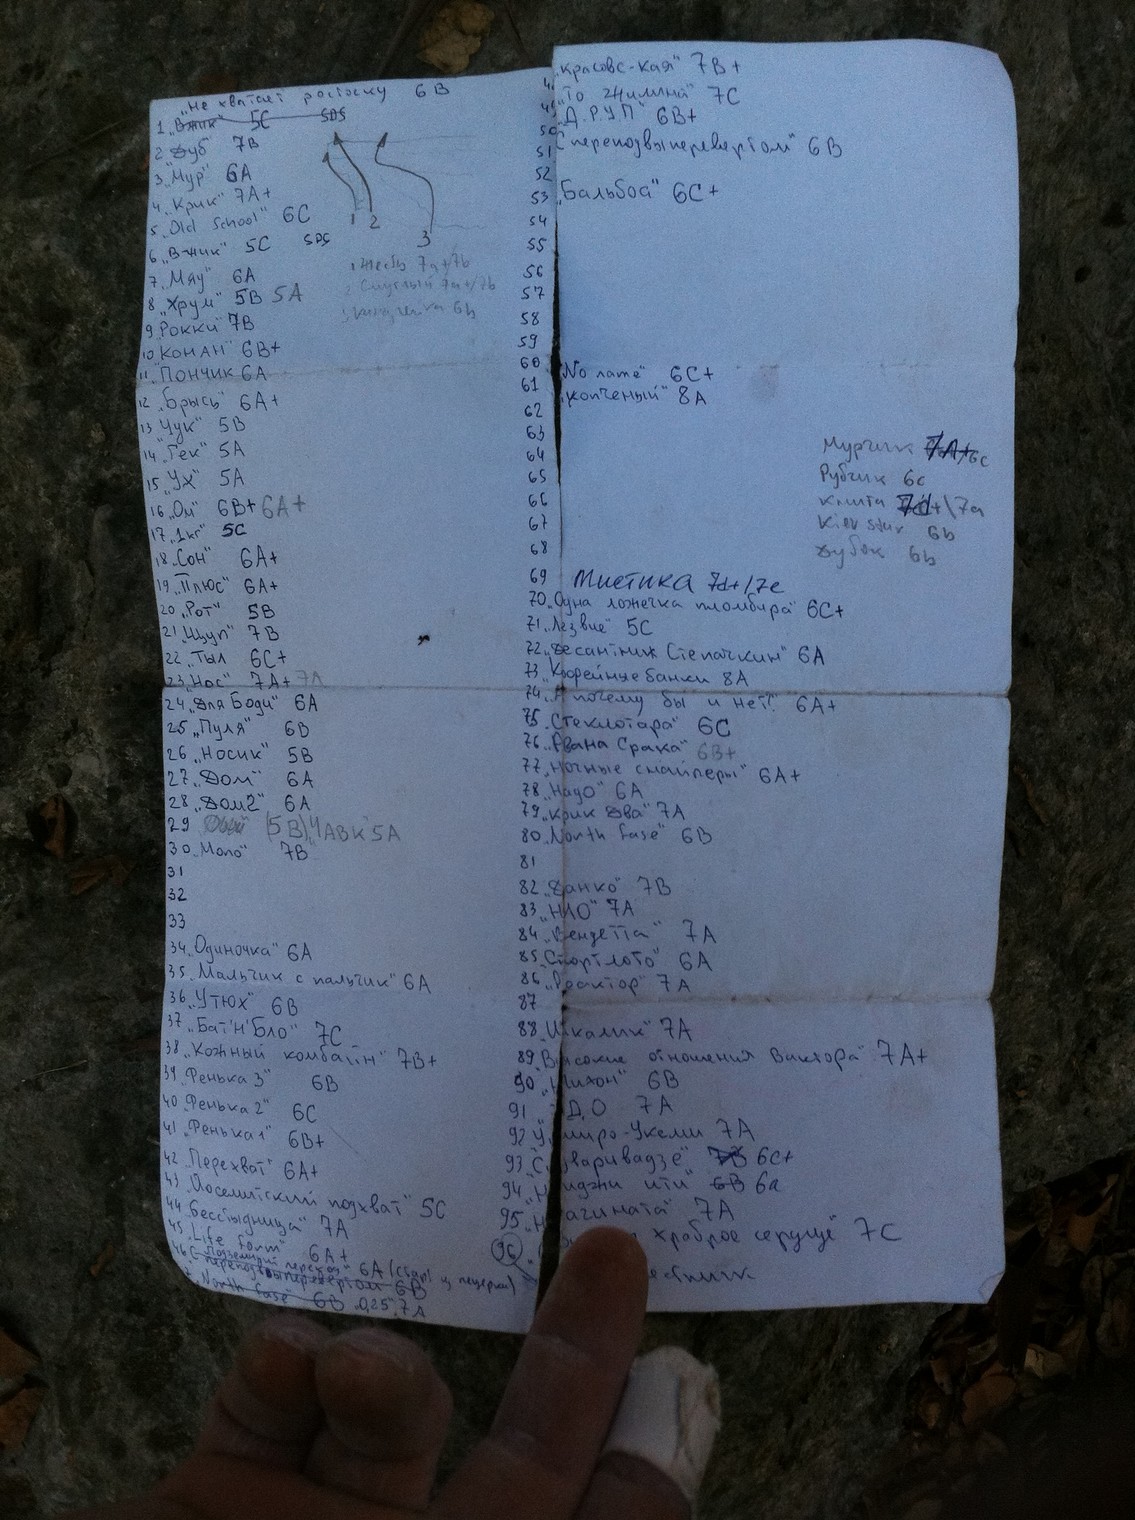 "Не хватает росточку 6B
1 "Вжик" 5C SDS
2 Дуб" 7B
3 "Мур" 6A
4 "Крик" 7A+
5 "Old School" 6C
6 "Вжик" 5C SDS
7 "Мяу" 6A
8 "Хрум" 5B 5A
9 "Рокки" 7B
10 "Конан" 6B+
11 "Пончик 6A
12 "Брысь" 6A+
13 "Чук" 5B
14 "Гек" 5A
15 "Ух" 5A
16 "Ом" 6B+ 6A+
17 "1кг" 5C
18 "Сон" 6A+
19 "Плюс" 6A+
20 "Рот" 5B
21 "Щуп" 7B
22 "Тыл 6C+
23 "Нос" 7A+ 7A
24 "Для Боди" 6A
25 "Пуля" 6B
26 "Носик" 5B
27 "Дом" 6A
28 "Дом2" 6A
29 (5B) "ЧАВК" 5A
30 "Моло" 7B
31
32
33
34 "Одиночка" 6A
35 "Мальчик с пальчик" 6A
36 "Утюх" 6B
37 "Бат'Н'Бло" 7C
38 "Кожный комбайн" 7B+
39 "Фенька 3" 6B
40 "Фенька 2" 6C
41 "Фенька 1" 6B+
42 "Перехват" 6A+
43 "Йосемитский подхват" 5C
44 "Бесстыдница" 7A
45 "Life form" 6A+
"Подземный переход" 6A (старт из пещерки)
46 С переподвыпервертом 6B
"North fase" 6B "0,25" 7A
1 2
3
1 Жесть 7a+/7b
2 Смуглый 7a+/7b
3 6b
"Красовс-кая" 7B+
49 "То жилина" 7C
50 "Д.Р.У.П" 6B+
51 С переподвыпервертом" 6B
52
53 "Бальбоа" 6C+
54
55
56
57
58
59
60 "No name" 6C+
61 "Копченый" 8A
62
63
64
65
66
67
68
Мурчик 7A+ 6c
Рубчик 6c
Книга 7a
Kiev star 6b
Дубок 6b
69 Мистика 7b+/7c
70 "Одна ложечка пломбира" 6C+
71 "Лезвие" 5C
72 "Десантник Степачкин" 6A
73 "Кофейные банки 8A
74 "А почему бы и нет?" 6A+
75 "Стеклотара" 6C
76 "Рвана Срака" 6B+
77 "Ночные снайперы" 6A+
78 "Надо" 6A
79 "Крик Два" 7A
80 "North fase" 6B
81
82 "Данко" 7B
83 "НЛО" 7A
84 "Вендетта" 7A
85 "Спортлото" 6A
86 "Реактор" 7A
87
88 "Шкалик" 7A
89 "Высокие отношения Виктора" 7A+
90 "Тихон" 6B
91 7A
92 7A
93 7B 6c+
94 6B 6a
95 7A
96 храброе сердце" 7C